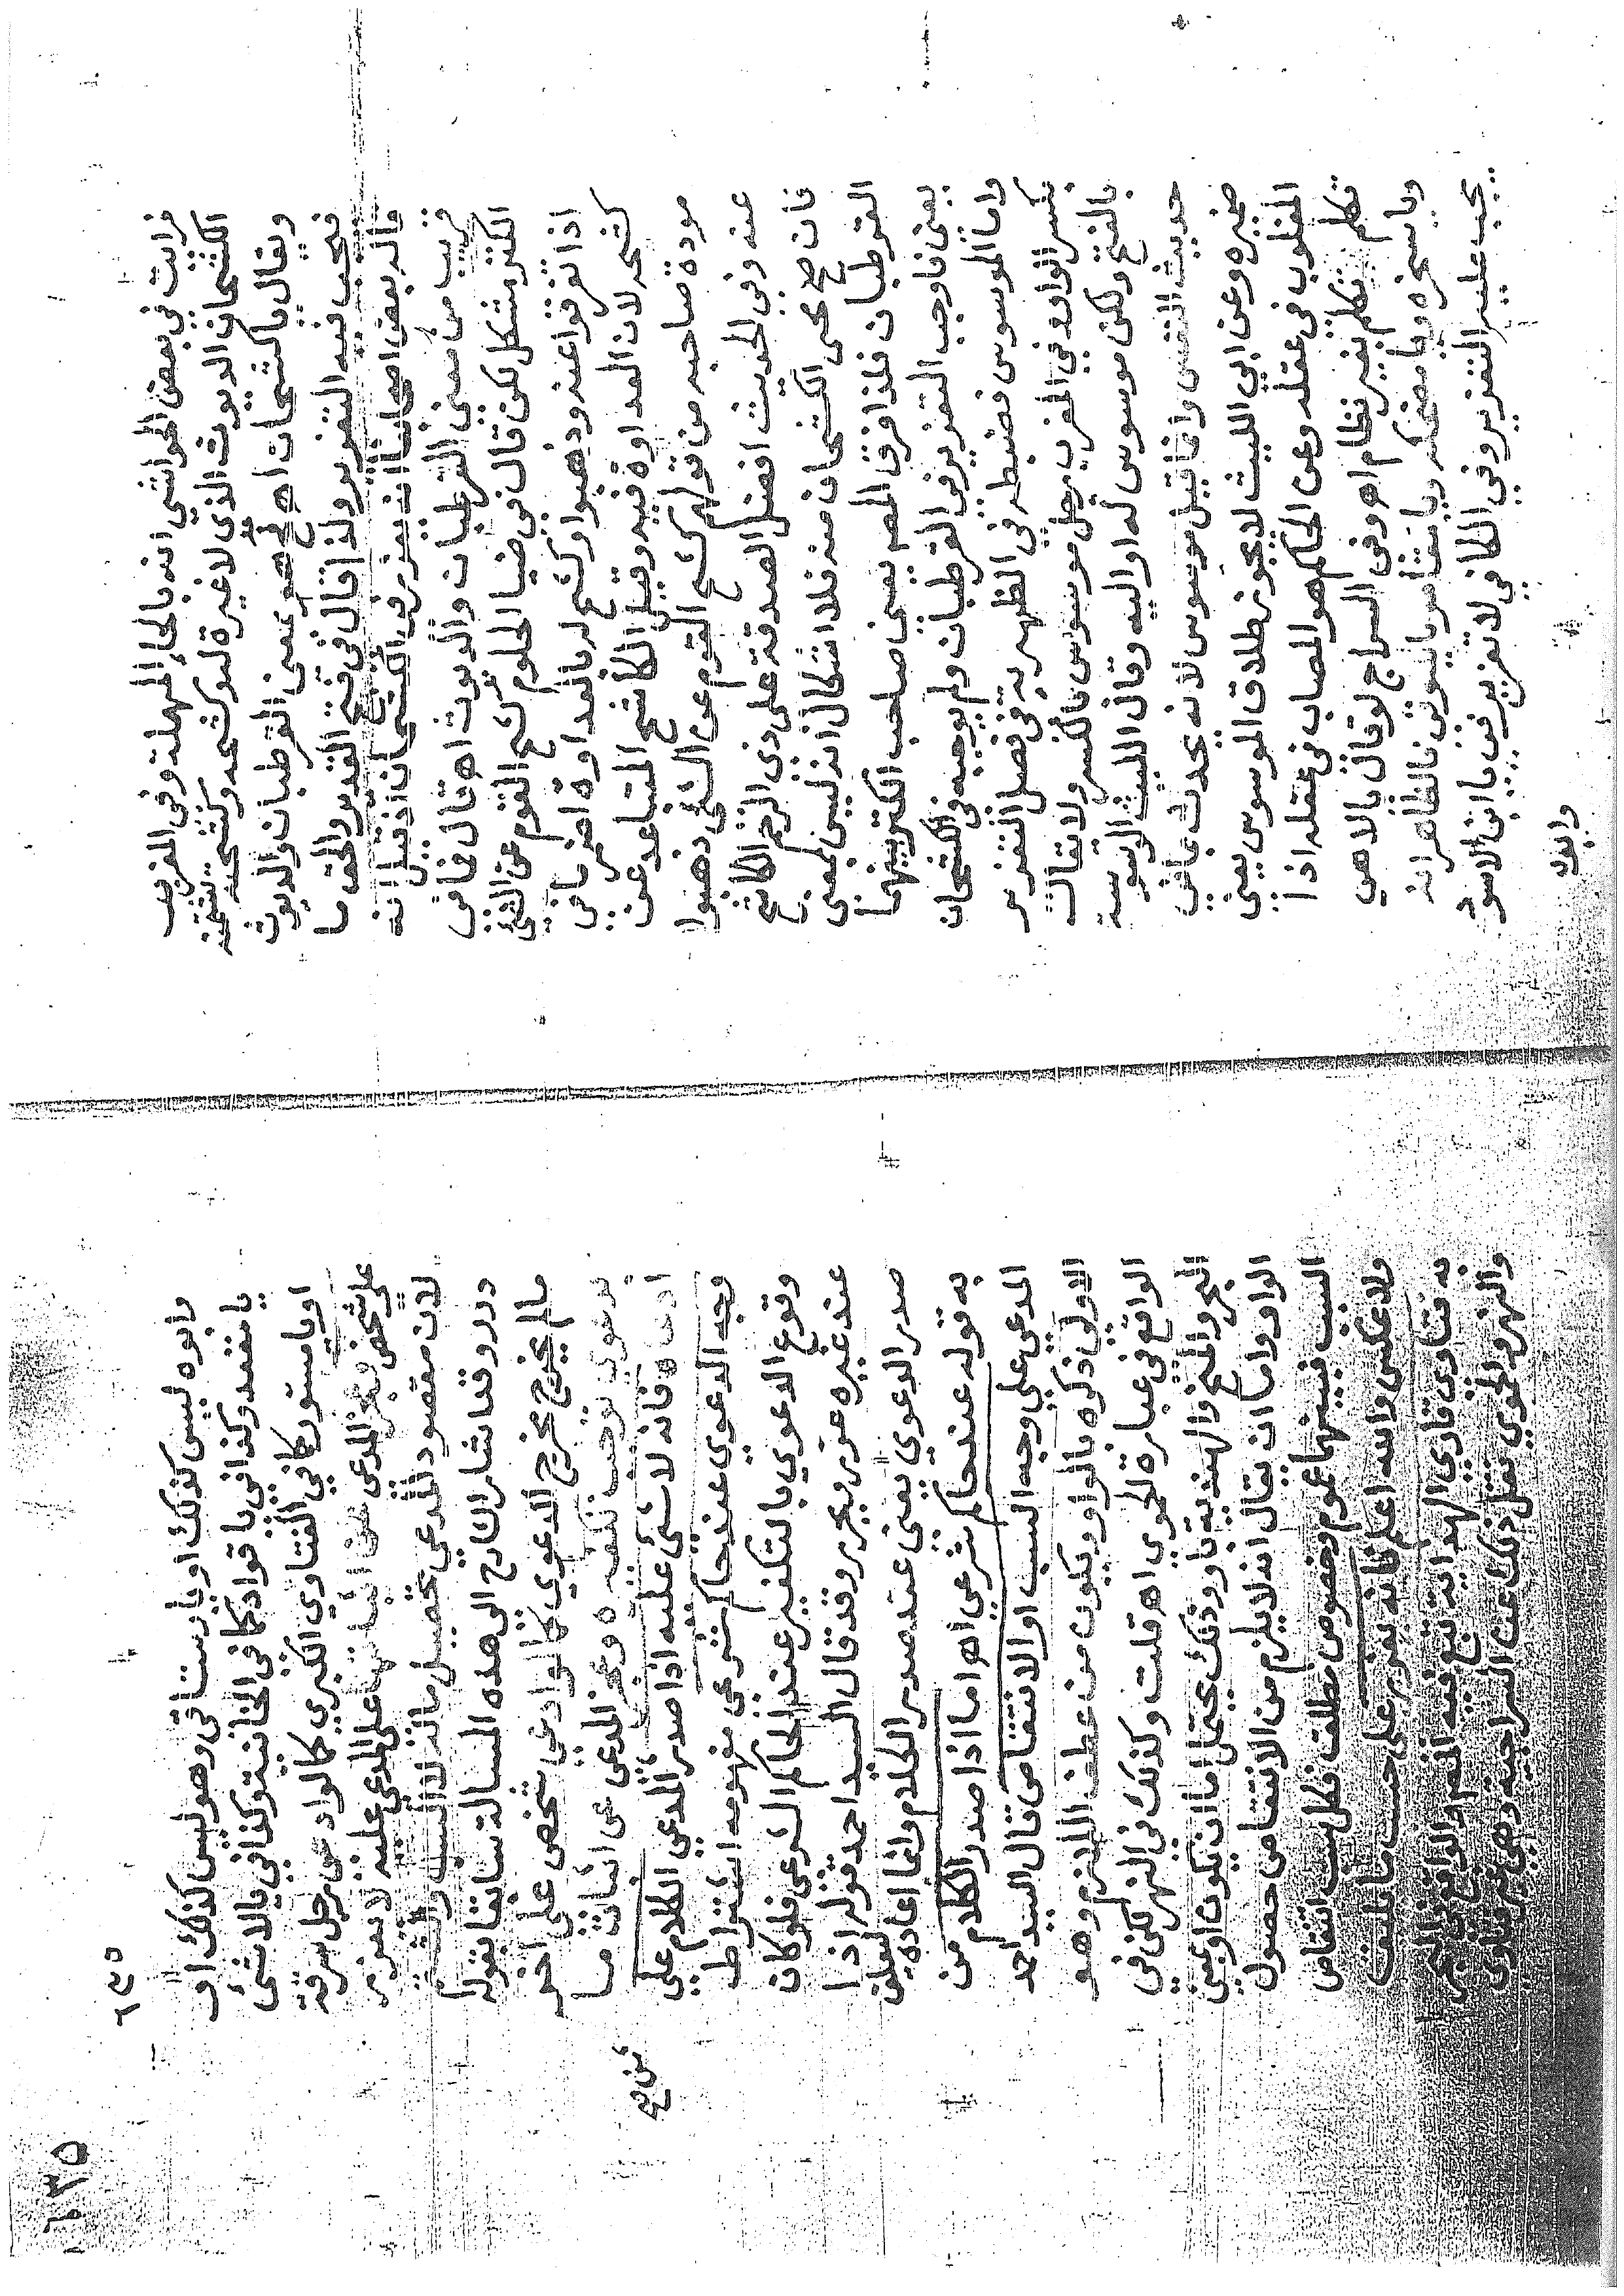 فرايت في بعض الحواشي انه بالحاء المهملة وفي المغرب
الكشحان الديوث الذي لا غيرة له وكشحه وكشحنه شتمه
ويقال يا كشحان اهـ فهو بمعنى القرطبان والديوث
فيجب فيه التعزير ولذا قال في فتح القدير والحق ما
قاله بعض اصحابنا انه يعزر في الكشحان اذ قيل انه
قريب من معنى القرطبان والديوث اهـ قال فما في
الكنز مشكل لكن قال في ضيا الحلوم كشح القوم عن الشئ
اذا تفرقوا عنه وذهبوا وكشح له بالعداوة اضمرها في
كشحه لان العداوة فيه وقيل الكاشح المتباعد عن
مودة صاحبه من قولهم كشح القوم عن الشئ ذهبوا
عنه وفي الحديث افضل الصدقة على ذي الرحم الكاشح
فان صح مجئ الكشحان منه فلا اشكال اذ ليس بمعنى
القرطبان فلذا فرق المصـ يعني صاحب الكنز بينهما
يعني فاوجب التعزير في القرطبان ولم يوجبه في الكشحان
واما الموسوس فضبطه في الظهيرية في فصل التعزير
بكسر الواو وفي المغرب رجل موسوس بالكسر ولا يقال
بالفتح ولكن موسوس له او اليه وقال الليث الوسوسة
حديث النفس وانما قيل موسوس لانه يحدث بما في
ضميره وعن ابي الليث لا يجوز طلاق الموسوس يعني
المغلوب في عقله وعن الحاكم هو المصاب في عقله اذا
تكلم تكلم بغير نظام اهـ وفي السراج لو قال يا لاهي
ويا سخره ويا ضحكه يا مقامر يا بيوتي فالظاهر انه
يجب عليه التعزير وفي الكافي لا تعزير في يا ابن الاسود
وابوه
٥٣٥
وابوه ليس كذلك او يا رستاقي وهو ليس كذلك او
يا مقعد وكذا في يا قواد كما في الخانية وكذا في يا لاشئ
او يا مستور كما في الفتاوي الكبرى كما لو ادعى رجل سرقة
على شخص فعجز المدعي عن اثباتها على المدعي عليه لا يعزر
لان مقصود المدعي تحصيل ماله لا السب والشتم
درر وقد اشار الشارح الى هذه المسالة سابقا بقوله
ما لم يخرج مخرج الدعوى كما لو ادعى شخص على اخر
بدعوى توجب تكفيره وعجز المدعي عن اثبات ما
ادعاه فانه لا شئ عليه اذا صدر المدعي الكلام على
وجه الدعوى عند حاكم شرعي مفهومه اشتراط
وقوع الدعوى بالتكفير عند الحاكم الشرعي فلو كان
عند غيره عزر ويحرر وقد قال السيد احمد قوله اذا
صدر الدعوى يعني عند صدر الكلام وانما اعاده ليعلق
به قوله عند حاكم شرعي اهـ اما اذا صدر الكلام من
المدعي على وجه السب او الانتقاص قال السيد احمد
الاولى ذكره بالواو ويكون من عطف اللازم وهو
الواقع في عبارة الحموي اهـ قلت وكذلك في النهر لكن في
البحر والمنح والهندية باو وذلك يحتمل اما ان يكون او بمعنى
الواو واما ان يقال انه لا يلزم من الانتقاص حصول
السب فبينهما عموم وخصوص مطلق فكل سب انتقاص
ولا عكس والله اعلم فانه يعزر على حسب ما يليق
به فتاوى قاري الهداية تبع فيه المصـ والواقع في البحر
والنهر والحموي نقل ذلك عن السراجية وهي غير فتاوى